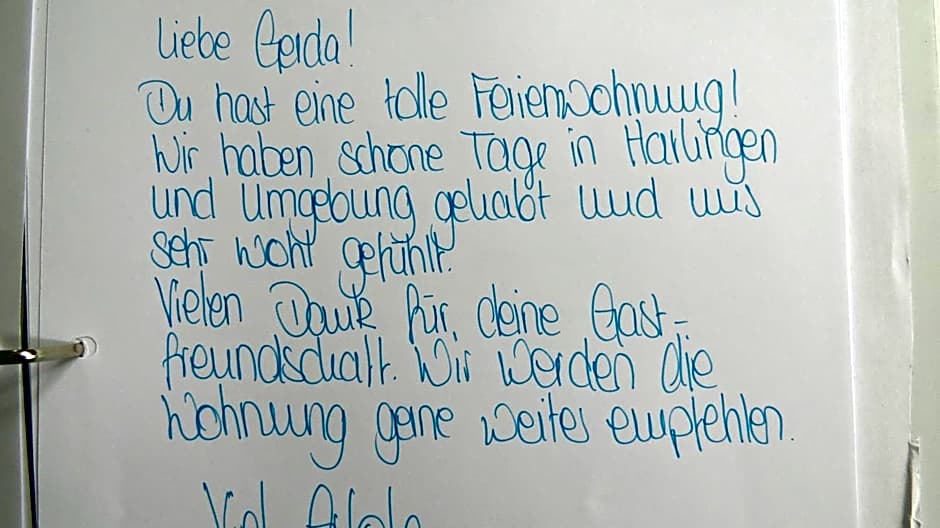 Liebe Gerda!
Du hast eine tolle Ferienwohnung!
Wir haben schöne Tage in Harlingen
und Umgebung gehabt und uns
sehr wohl gefühlt.
Vielen Dank für deine Gast-
freundschaft. Wir werden die
Wohnung gerne weiter empfehlen.
Viel